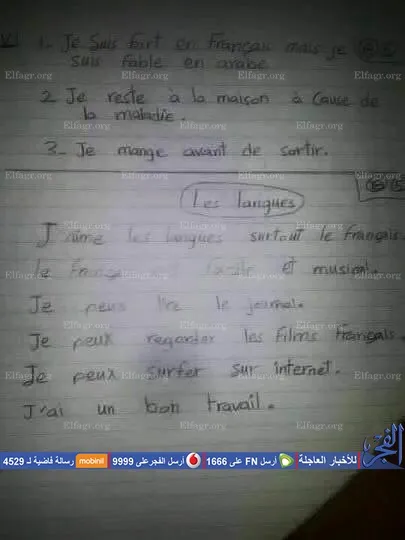 VI 1- Je suis fort en français mais je
suis faible en arabe
2 Je reste à la maison à cause de
la maladie.
3- Je mange avant de sortir.
Les langues
J'aime les langues surtout le français.
le França facile et musical.
Je peux lire le journal.
Je peux regarder les films français.
Je peux surfer sur internet.
J'ai un bon travail.
Elfagr.org
الفجر
للأخبار العاجلة أرسل FN على 1666 أرسل الفجر على 9999 mobinil رسالة فاضية لـ 4529